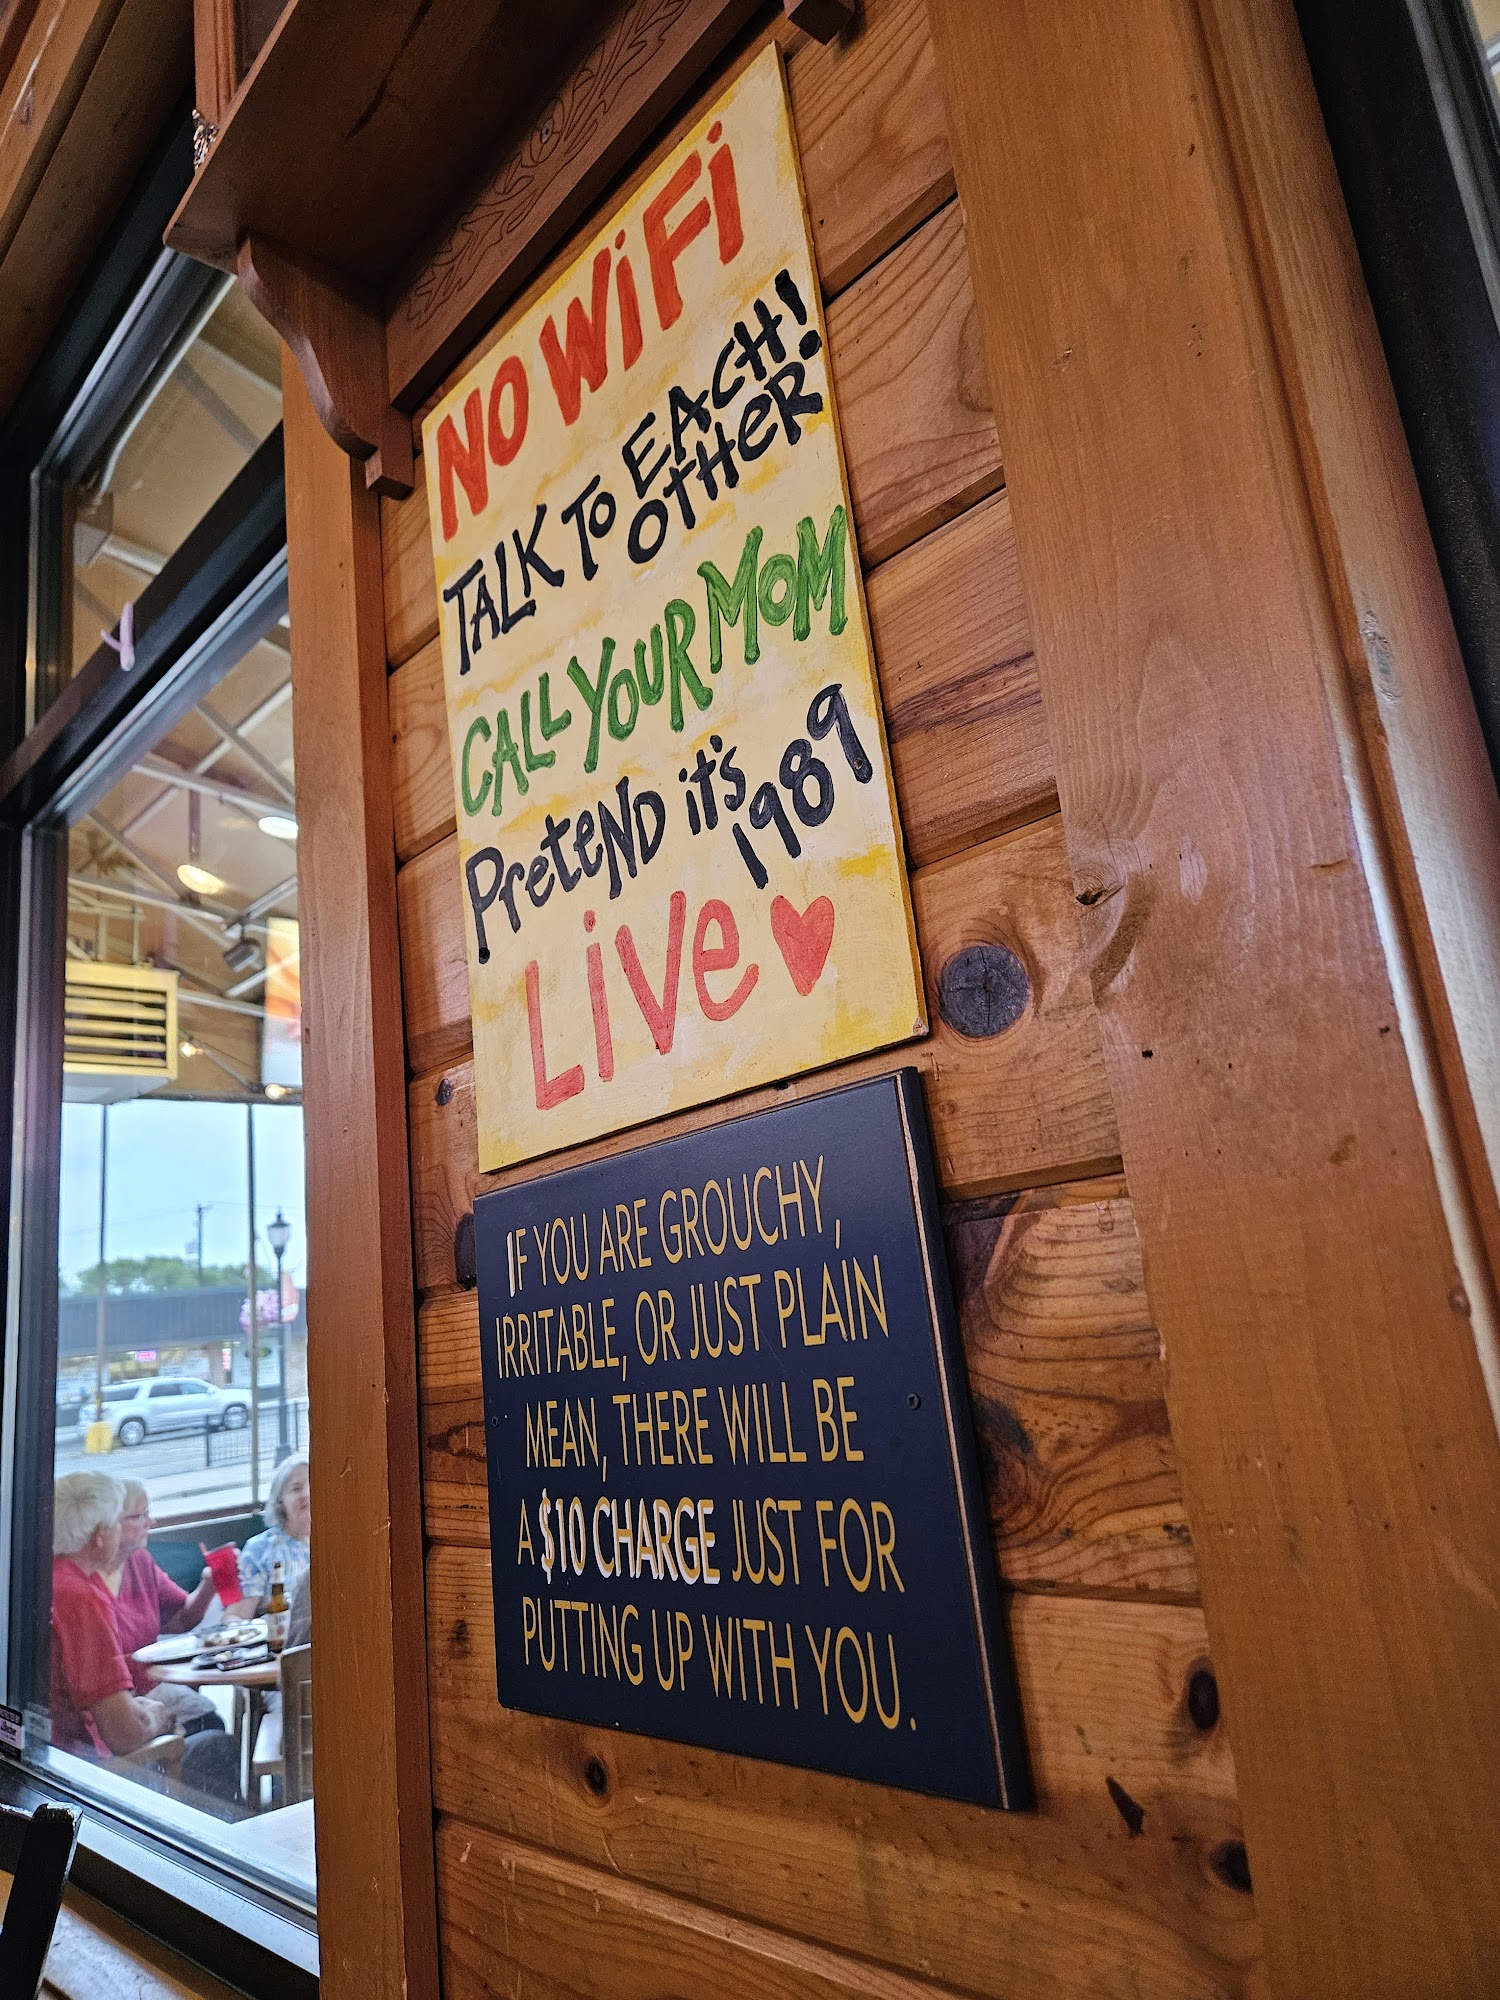 NO WiFi
TALK TO EACH!
OtHeR
CALL YOUR MOM
PreteND it's
1989
LiVe
IF YOU ARE GROUCHY,
IRRITABLE, OR JUST PLAIN
MEAN, THERE WILL BE
A $10 CHARGE JUST FOR
PUTTING UP WITH YOU.